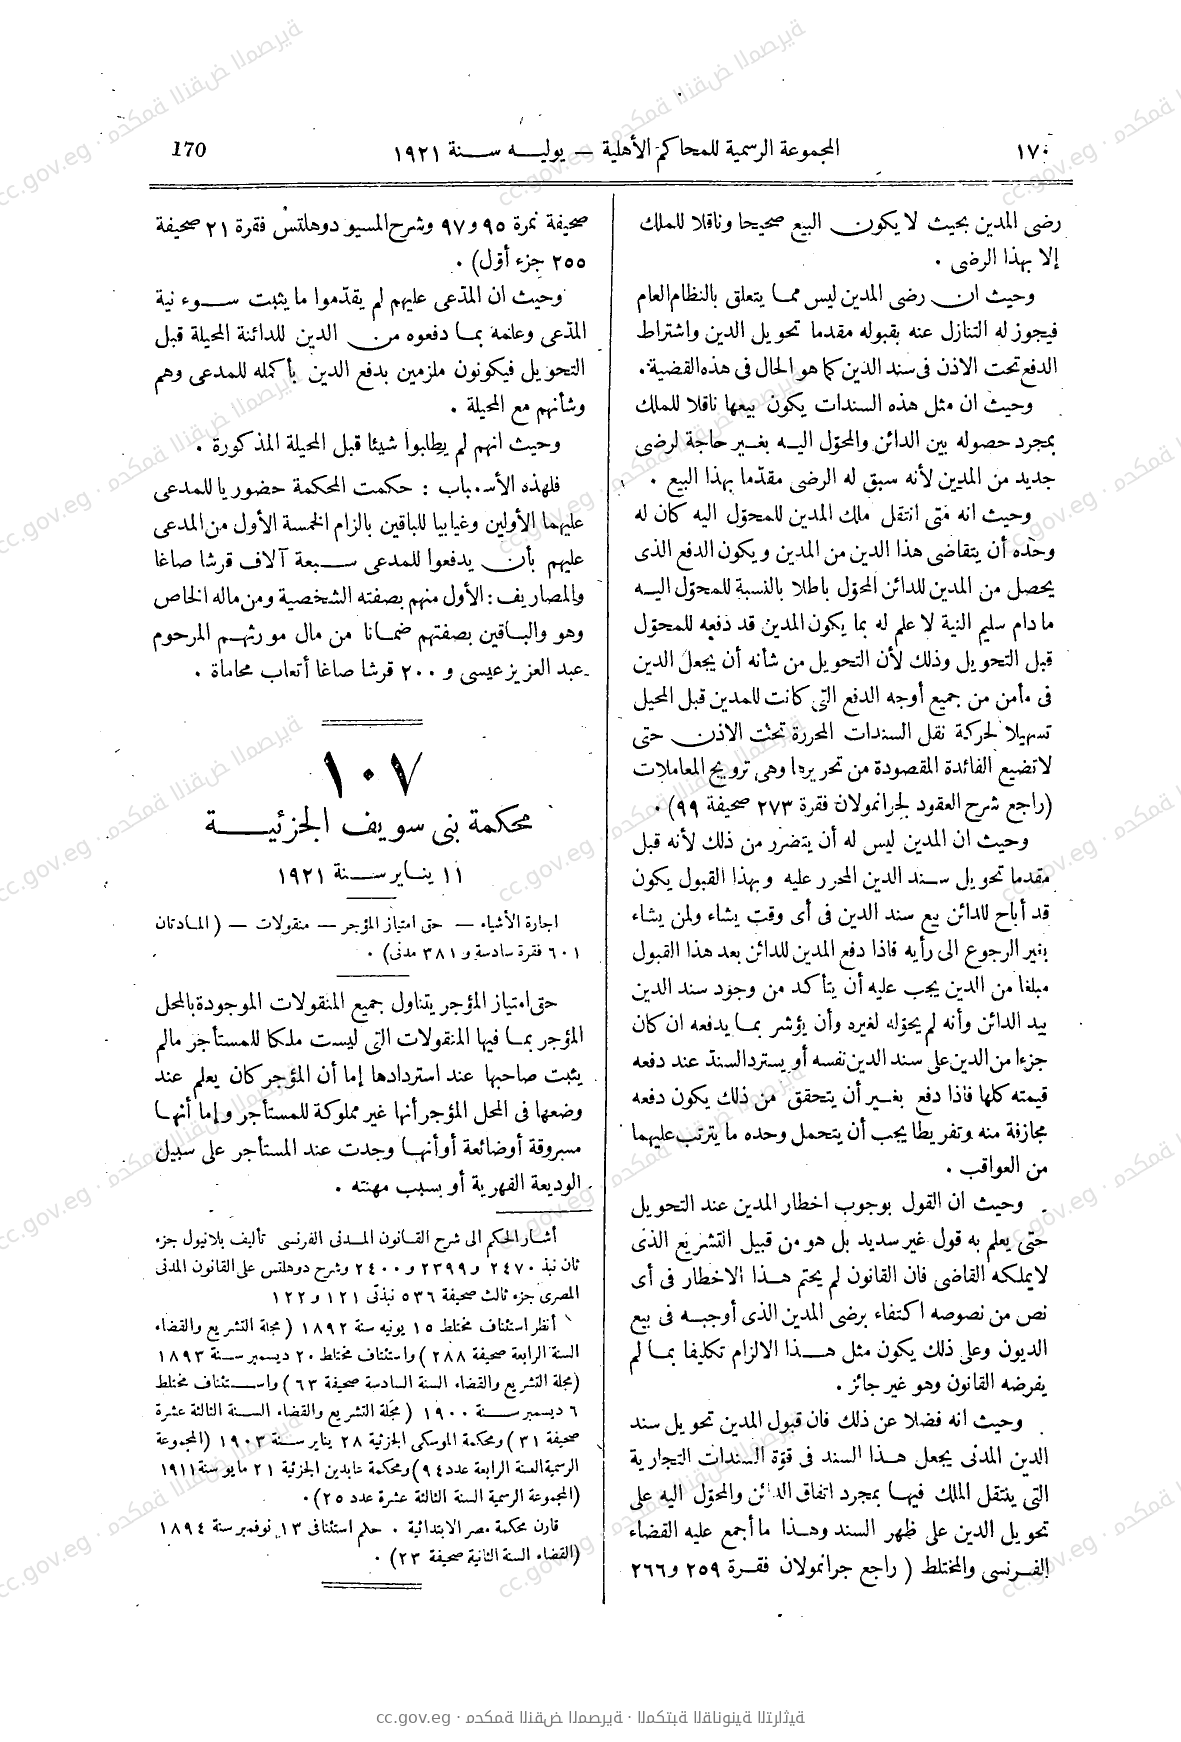 ١٧٠
المجموعة الرسمية للمحاكم الأهلية — يوليه سنة ١٩٢١
170
رضى المدين بحيث لا يكون البيع صحيحا وناقلا للملك
إلا بهذا الرضى .
وحيث ان رضى المدين ليس مما يتعلق بالنظام العام
فيجوز له التنازل عنه بقبوله مقدما تحويل الدين واشتراط
الدفع تحت الاذن فى سند الدين كما هو الحال فى هذه القضية .
وحيث ان مثل هذه السندات يكون بيعها ناقلا للملك
بمجرد حصوله بين الدائن والمحوّل اليه بغير حاجة لرضى
جديد من المدين لأنه سبق له الرضى مقدّما بهذا البيع .
وحيث انه متى انتقل ملك المدين للمحوّل اليه كان له
وحده أن يتقاضى هذا الدين من المدين ويكون الدفع الذى
يحصل من المدين للدائن المحوّل باطلا بالنسبة للمحوّل اليه
ما دام سليم النية لا علم له بما يكون المدين قد دفعه للمحوّل
قبل التحويل وذلك لأن التحويل من شأنه أن يجعل الدين
فى مأمن من جميع أوجه الدفع التى كانت للمدين قبل المحيل
تسهيلا لحركة نقل السندات المحررة تحت الاذن حتى
لا تضيع الفائدة المقصودة من تحريرها وهى ترويج المعاملات
(راجع شرح العقود لجرانمولان فقرة ٢٧٣ صحيفة ٩٩) .
وحيث ان المدين ليس له أن يتضرر من ذلك لأنه قبل
مقدما تحويل سند الدين المحرر عليه وبهذا القبول يكون
قد أباح للدائن بيع سند الدين فى أى وقت يشاء ولمن يشاء
بغير الرجوع الى رأيه فاذا دفع المدين للدائن بعد هذا القبول
مبلغا من الدين يجب عليه أن يتأكد من وجود سند الدين
بيد الدائن وأنه لم يحوّله لغيره وأن يؤشر بما يدفعه ان كان
جزءا من الدين على سند الدين نفسه أو يسترد السند عند دفعه
قيمته كلها فاذا دفع بغير أن يتحقق من ذلك يكون دفعه
مجازفة منه وتفريطا يجب أن يتحمل وحده ما يترتب عليهما
من العواقب .
وحيث ان القول بوجوب اخطار المدين عند التحويل
حتى يعلم به قول غير سديد بل هو من قبيل التشريع الذى
لا يملكه القاضى فان القانون لم يحتم هذا الاخطار فى أى
نص من نصوصه اكتفاء برضى المدين الذى أوجبه فى بيع
الديون وعلى ذلك يكون مثل هذا الالزام تكليفا بما لم
يفرضه القانون وهو غير جائز .
وحيث انه فضلا عن ذلك فان قبول المدين تحويل سند
الدين المدنى يجعل هذا السند فى قوّة السندات التجارية
التى ينتقل الملك فيها بمجرد اتفاق الدائن والمحوّل اليه على
تحويل الدين على ظهر السند وهذا ما أجمع عليه القضاء
الفرنسى والمختلط ( راجع جرانمولان فقرة ٢٥٩ و ٢٦٦
صحيفة نمرة ٩٥ و ٩٧ وشرح المسيو دوهلتس فقرة ٢١ صحيفة
٢٥٥ جزء أوّل) .
وحيث ان المدّعى عليهم لم يقدّموا ما يثبت سوء نية
المدّعى وعلمه بما دفعوه من الدين للدائنة المحيلة قبل
التحويل فيكونون ملزمين بدفع الدين بأكمله للمدعى وهم
وشأنهم مع المحيلة .
وحيث انهم لم يطلبوا شيئا قبل المحيلة المذكورة .
فلهذه الأسباب : حكمت المحكمة حضوريا للمدعى
عليهما الأولين وغيابيا للباقين بالزام الخمسة الأول من المدعى
عليهم بأن يدفعوا للمدعى سبعة آلاف قرشا صاغا
والمصاريف : الأول منهم بصفته الشخصية ومن ماله الخاص
وهو والباقين بصفتهم ضمانا من مال مورثهم المرحوم
عبد العزيز عيسى و ٢٠٠ قرشا صاغا أتعاب محاماة .
١٠٧
محكمة بنى سويف الجزئية
١١ يناير سنة ١٩٢١
اجارة الأشياء — حق امتياز المؤجر — منقولات — ( المادتان
٦٠١ فقرة سادسة و ٣٨١ مدنى) .
حق امتياز المؤجر يتناول جميع المنقولات الموجودة بالمحل
المؤجر بما فيها المنقولات التى ليست ملكا للمستأجر مالم
يثبت صاحبها عند استردادها إما أن المؤجر كان يعلم عند
وضعها فى المحل المؤجر أنها غير مملوكة للمستأجر وإما أنها
مسروقة أو ضائعة أو أنها وجدت عند المستأجر على سبيل
الوديعة القهرية أو بسبب مهنته .
أشار الحكم الى شرح القانون المدنى الفرنسى تأليف بلانيول جزء
ثان نبذ ٢٤٧٠ و ٢٣٩٩ و ٢٤٠٠ وشرح دوهلتس على القانون المدنى
المصرى جزء ثالث صحيفة ٥٣٦ نبذتى ١٢١ و ١٢٢
أنظر استئناف مختلط ١٥ يونيه سنة ١٨٩٢ ( مجلة التشريع والقضاء
السنة الرابعة صحيفة ٢٨٨ ) واستئناف مختلط ٢٠ ديسمبر سنة ١٨٩٣
(مجلة التشريع والقضاء السنة السادسة صحيفة ٦٣ ) واستئناف مختلط
٦ ديسمبر سنة ١٩٠٠ ( مجلة التشريع والقضاء السنة الثالثة عشرة
صحيفة ٣١ ) ومحكمة الموسكى الجزئية ٢٨ يناير سنة ١٩٠٣ (المجموعة
الرسمية السنة الرابعة عدد ٩٤ ) ومحكمة عابدين الجزئية ٢١ مايو سنة ١٩١١
(المجموعة الرسمية السنة الثالثة عشرة عدد ٢٥) .
قارن محكمة مصر الابتدائية . حكم استئنافى ١٣ نوفمبر سنة ١٨٩٤
(القضاء السنة الثانية صحيفة ٢٣) .
cc.gov.eg · محكمة النقض المصرية · المكتبة القانونية التراثية